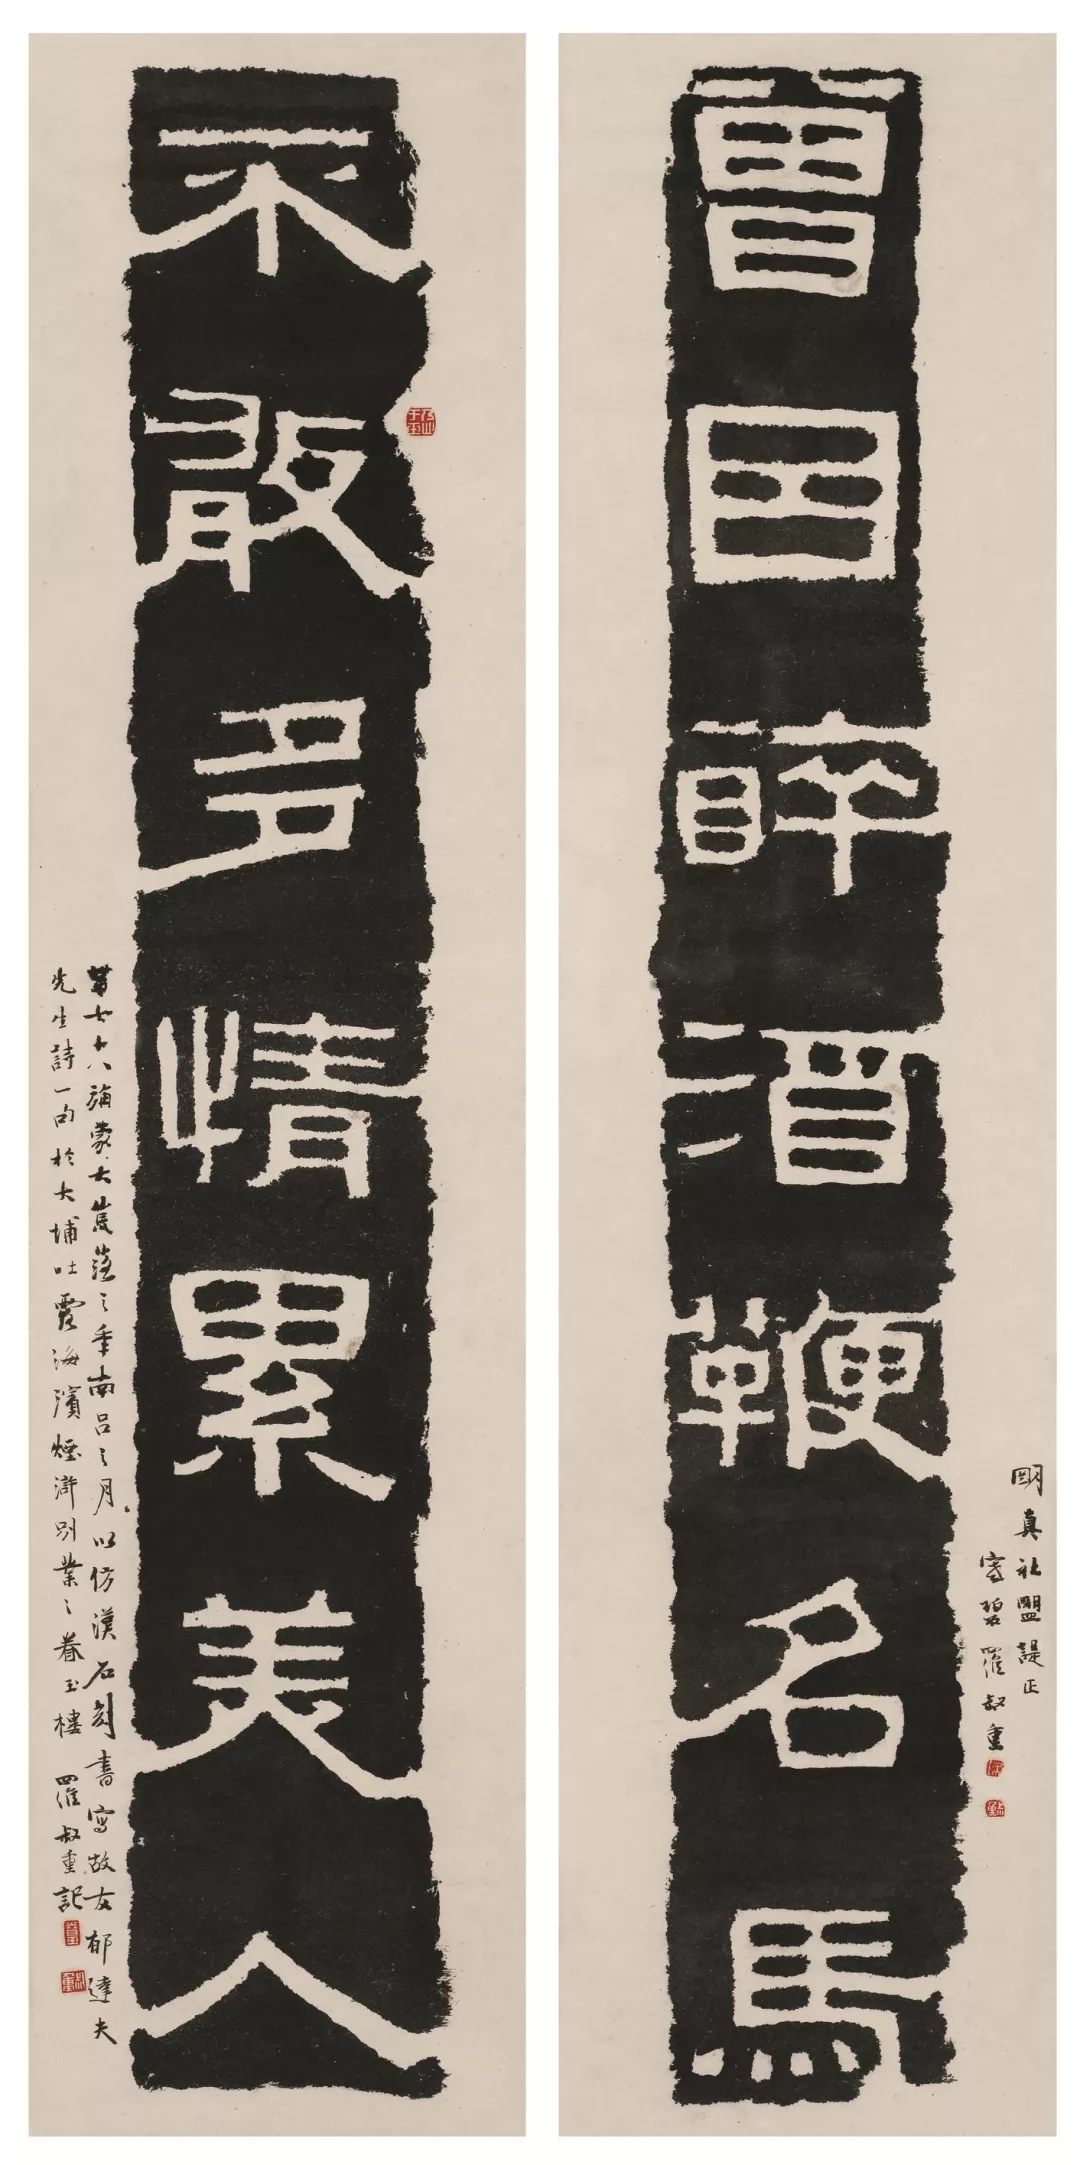 曾因醉酒鞭名馬
朙真社盟諟正
寒碧羅叔重
不敢多情累美人
第七十八旃蒙大荒落之秊南呂之月以仿漢石刻書寫故友郁達夫
先生詩一句於大埔吐露海濱煙滸別業之眷玉樓 羅叔重記